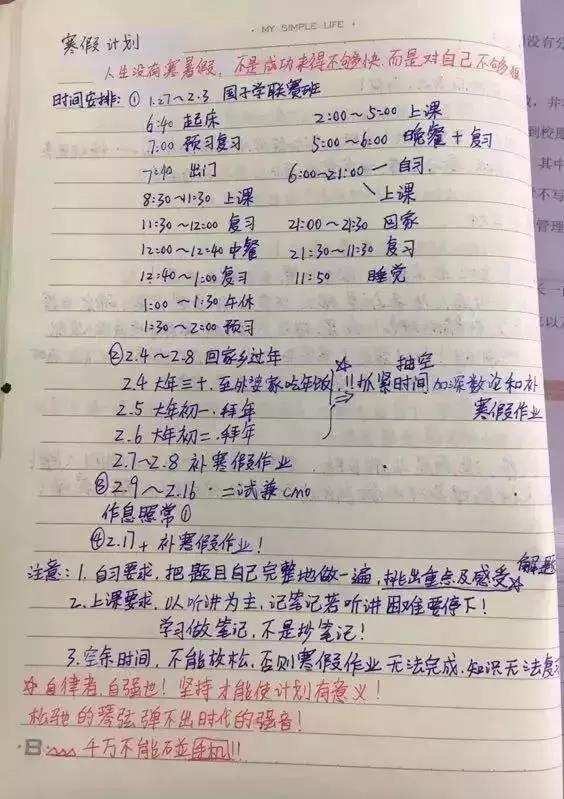 · MY SIMPLE LIFE ·
寒假计划
人生没有寒暑假，不是成功来得不够快，而是对自己不够狠
时间安排：① 1.27～2.3 国子学联赛班
6:40 起床 2:00～5:00 上课
7:00 预习复习 5:00～6:00 晚餐＋复习
7:40 出门 6:00～21:00 一自习
上课
8:30～11:30 上课
11:30～12:00 复习 21:00～21:30 回家
12:00～12:40 中餐 21:30～11:30 复习
12:40～1:00 复习 11:50 睡觉
1:00～1:30 午休
1:30～2:00 预习
② 2.4～2.8 回家乡过年
2.4 大年三十，至外婆家吃年饭 !! 抓紧时间 加深数论和补
抽空
寒假作业
2.5 大年初一．拜年
2.6 大年初二．拜年
2.7～2.8 补寒假作业
③ 2.9～2.16．二试兼cmo
作息照常①
④ 2.17＋ 补寒假作业！
注意：1. 自习要求，把题目自己完整地做一遍，挑出重点及感受
解题
2. 上课要求，以听讲为主，记笔记若听讲困难要停下！
学习做笔记，不是抄笔记！
3. 空余时间，不能放松，否则寒假作业无法完成，知识无法复
☆自律者，自强也！坚持才能使计划有意义！
松弛的琴弦弹不出时代的强音！
B 千万不能碰手机!!
没有分
并
到校
其中
不写
管理
长一
以